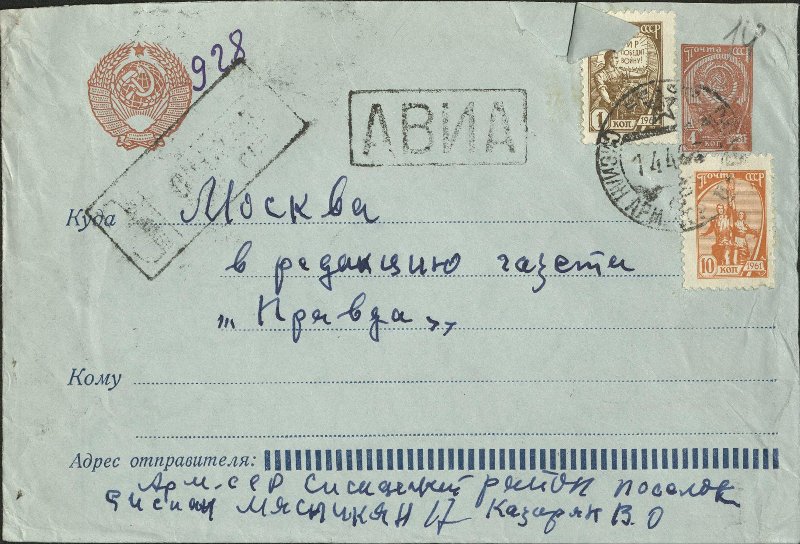 928
10
МИР
ПОБЕДИТ
ВОЙНУ!
СССР
1 КОП 1961
ПОЧТА СССР
КОП
АВИА
СИСИАН АРМ.
14
Куда Москва
в редакцию газети
„Правда”
ПОЧТА СССР
10 КОП 1961
Кому
Адрес отправителя:
Арм.ССР Сисианский район поселок
Сисиан Мясникян 17 Казарян В.О